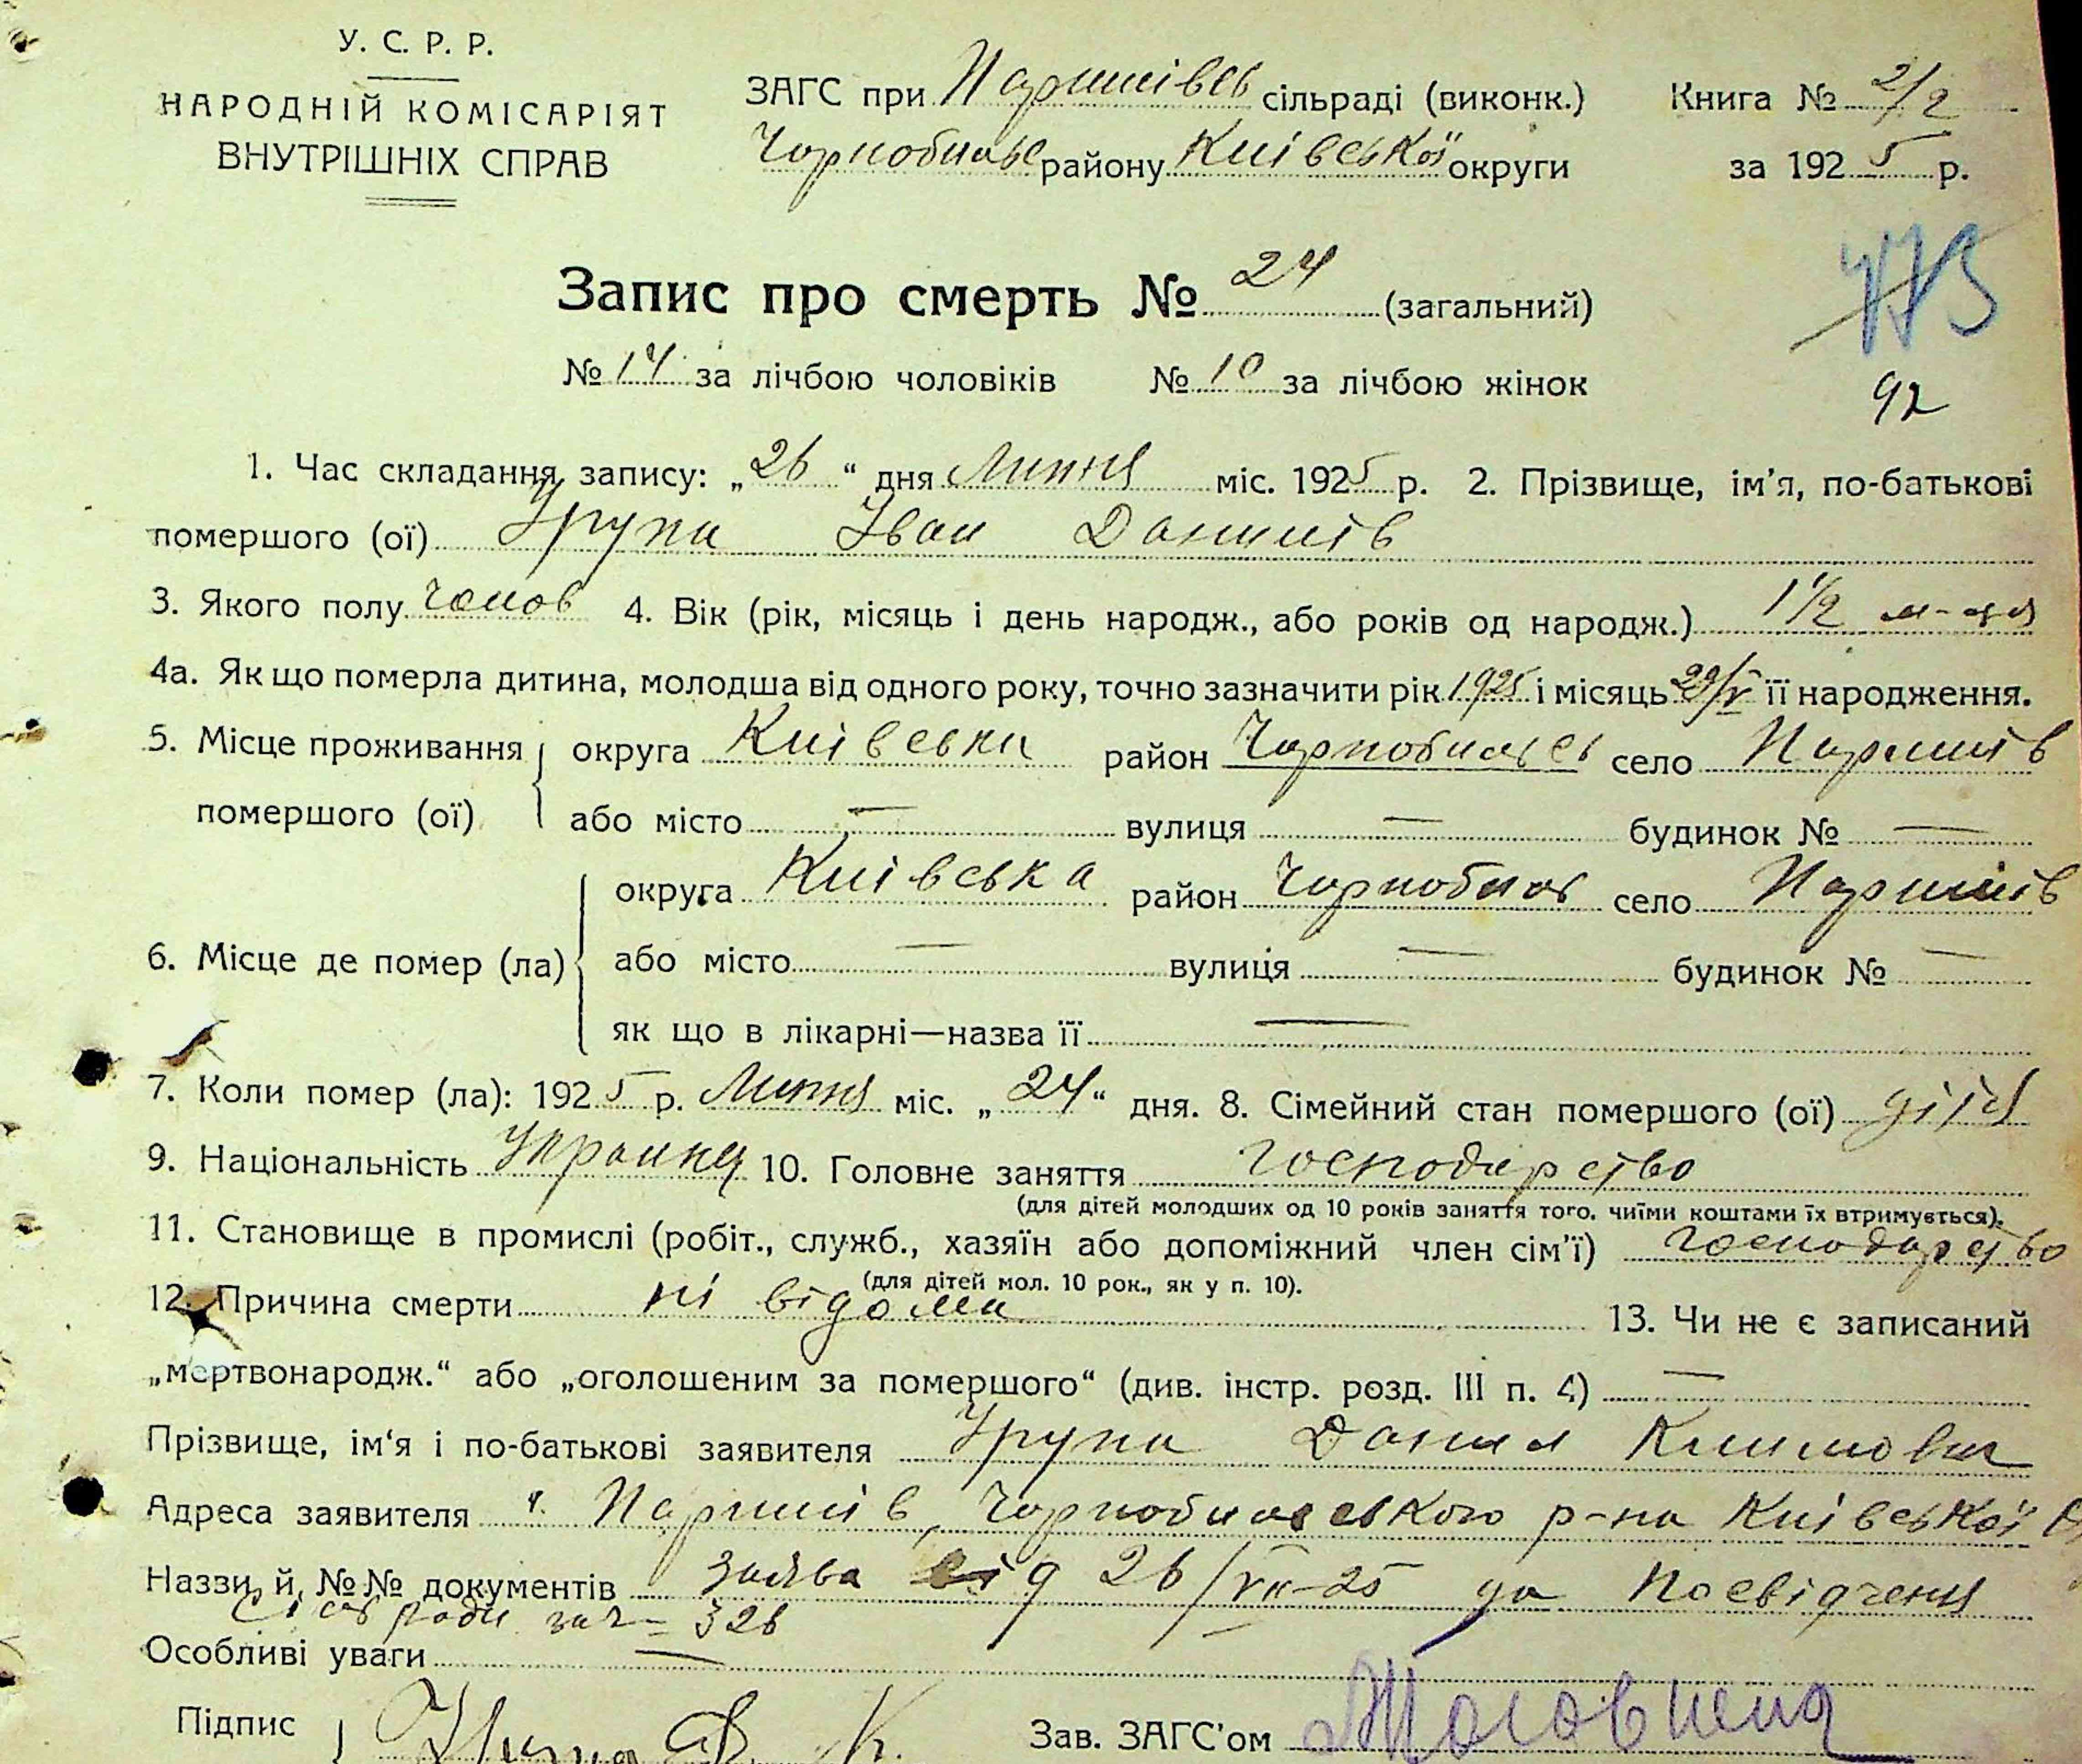 У. С. Р. Р.
НАРОДНІЙ КОМІСАРІЯТ
ВНУТРІШНІХ СПРАВ
ЗАГС при Паришівськ сільраді (виконк.)
Чорнобильс району Київської округи
Книга № 2/2
за 1925 р.
Запис про смерть № 24 (загальний)
473
№ 14 за лічбою чоловіків № 10 за лічбою жінок
92
1. Час складання запису: „26“ дня Липня міс. 1925 р. 2. Прізвище, ім'я, по-батькові
помершого (ої) Іван Данилів
3. Якого полу чолов 4. Вік (рік, місяць і день народж., або років од народж.) 1 1/2 м-ця
4а. Як що померла дитина, молодша від одного року, точно зазначити рік 1925 і місяць 29/V її народження.
5. Місце проживання помершого (ої) округа Київська район Чорнобильсь село Паришів
або місто — вулиця — будинок № —
6. Місце де помер (ла) округа Київська район Чорнобил село Паришів
або місто — вулиця — будинок № —
як що в лікарні—назва її —
7. Коли помер (ла): 1925 р. Липня міс. „24“ дня. 8. Сімейний стан помершого (ої) дітя
9. Національність 10. Головне заняття господарство
(для дітей молодших од 10 років заняття того, чиїми коштами їх втримується).
11. Становище в промислі (робіт., служб., хазяїн або допоміжний член сім'ї) господарство
(для дітей мол. 10 рок., як у п. 10).
12. Причина смерти ні відома 13. Чи не є записаний
„мертвонародж.“ або „оголошеним за помершого“ (див. інстр. розд. III п. 4) —
Прізвище, ім'я і по-батькові заявителя Данил Климович
Адреса заявителя с. Паришів, Чорнобильського р-на Київської
Назви й №№ документів заява від 26/VII-25 да посвідченя
сільради за № 326
Особливі уваги —
Підпис
Зав. ЗАГС'ом